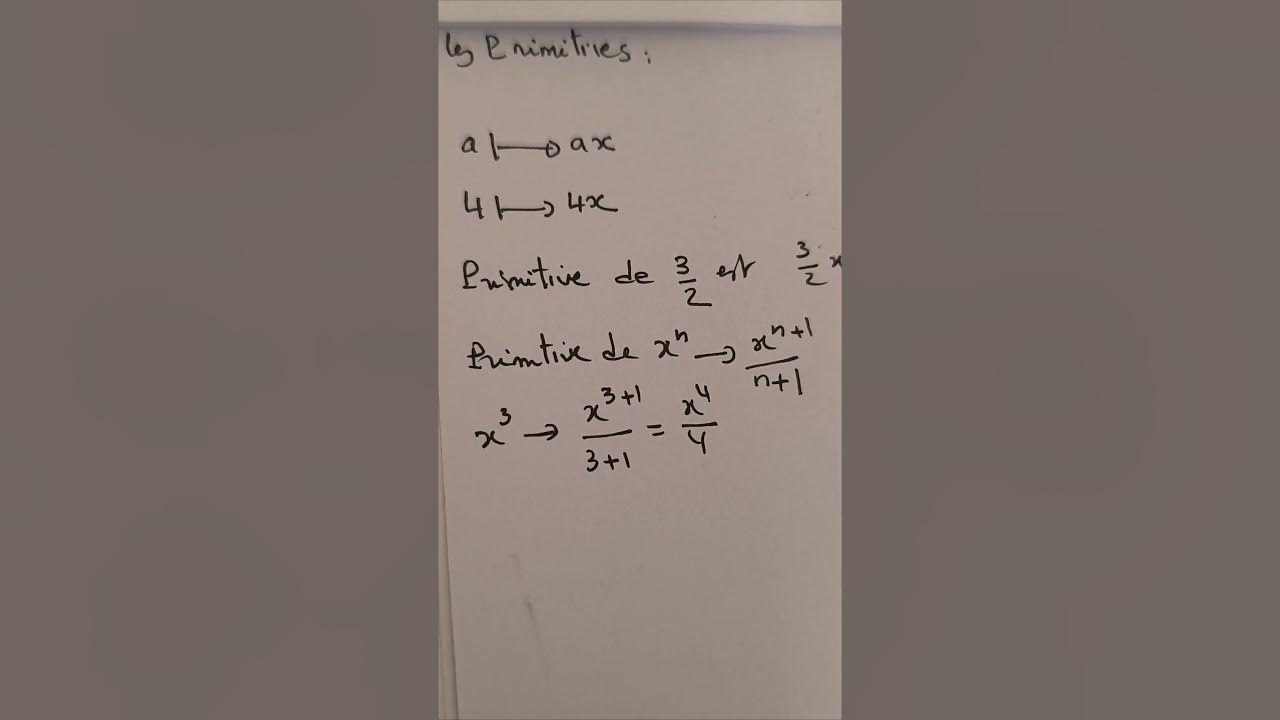 les Primitives :
a ↦ ax
4 ↦ 4x
Primitive de 3/2 est 3/2 x
Primitive de x^n → x^(n+1)/(n+1)
x^3 → x^(3+1)/(3+1) = x^4/4